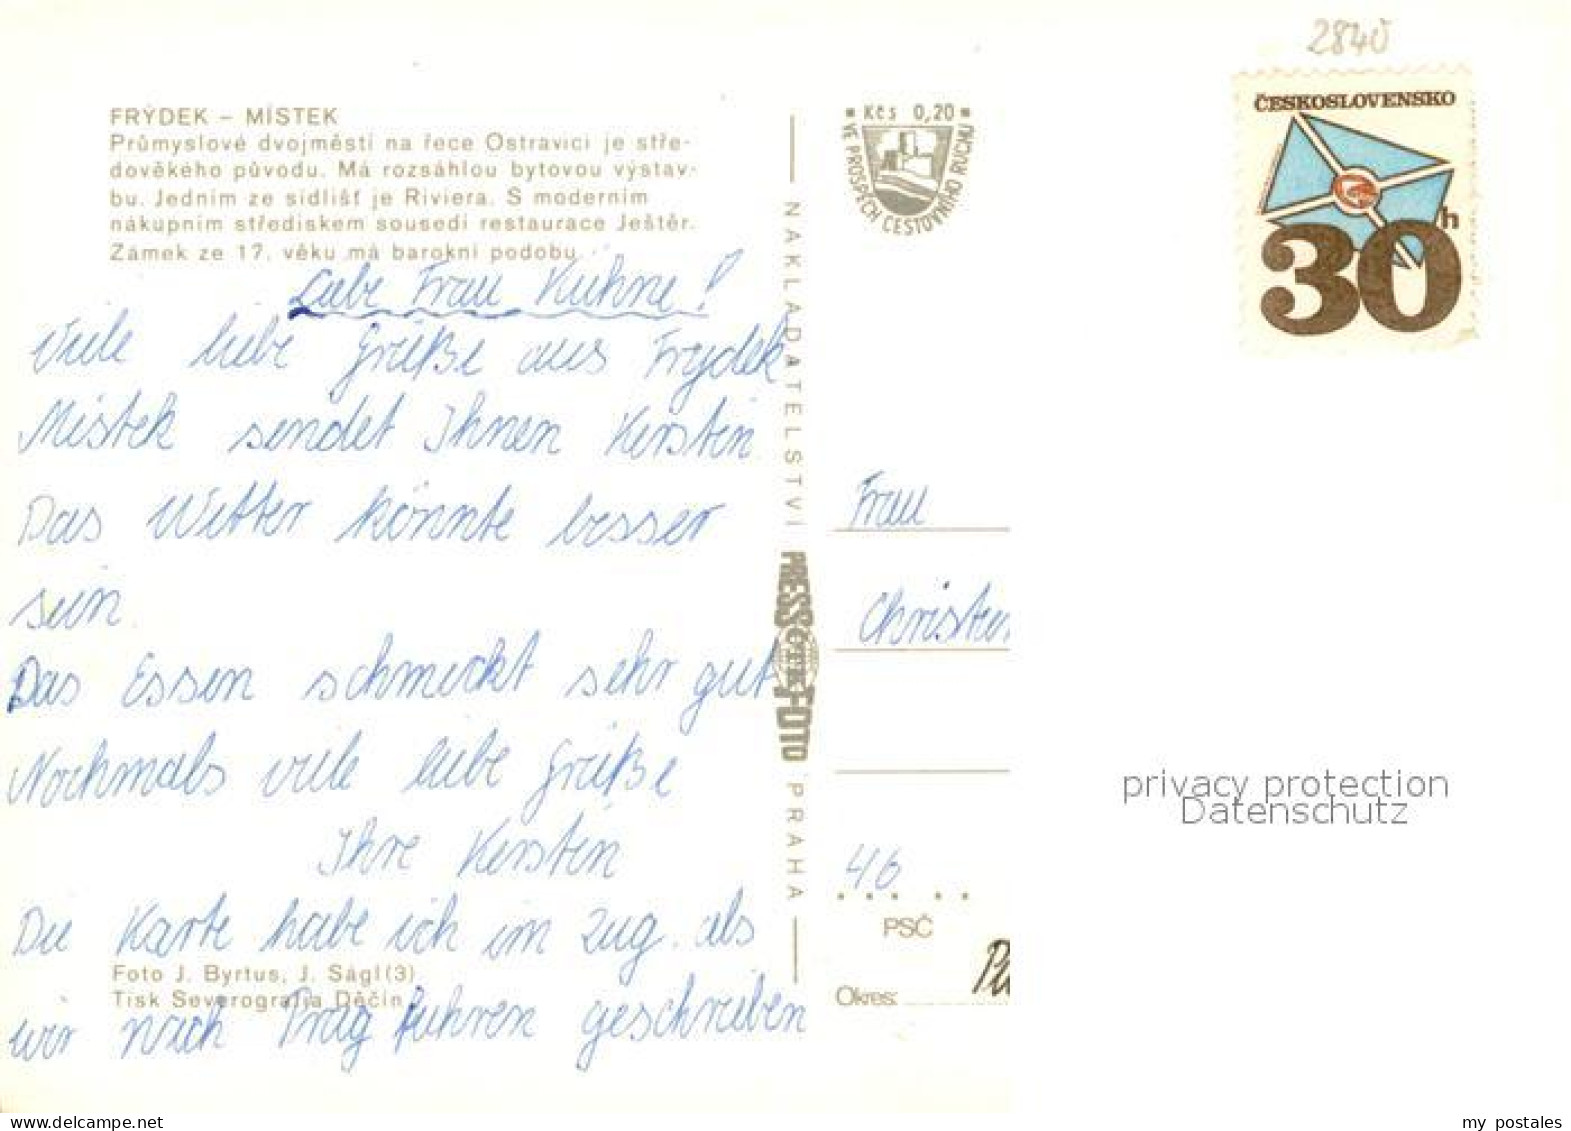 2840
FRÝDEK – MÍSTEK
Průmyslové dvojměstí na řece Ostravici je stře-
dověkého původu. Má rozsáhlou bytovou výstav-
bu. Jedním ze sídlišť je Riviera. S moderním
nákupním střediskem sousedí restaurace Ještěr.
Zámek ze 17. věku má barokní podobu.
Liebe Frau Kühne!
Viele liebe Grüße aus Frydek
Mistek sendet Ihnen Kerstin
Das Wetter könnte besser
sein.
Das Essen schmeckt sehr gut
Nochmals viele liebe Grüße
Ihre Kerstin
Die Karte habe ich im Zug. als
wir nach Prag fuhren geschrieben
Foto J. Byrtus, J. Ságl (3)
Tisk Severografia Děčín
NAKLADATELSTVÍ PRESSFOTO PRAHA
ČTK
Kčs 0,20
VE PROSPĚCH CESTOVNÍHO RUCHU
ČESKOSLOVENSKO
30h
Frau
Christin
46
PSČ
Okres:
privacy protection
Datenschutz
my postales